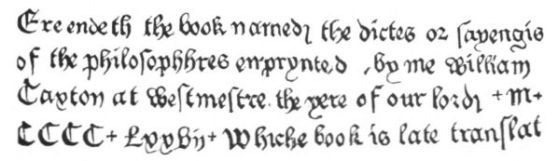 Ere endeth the book named the dictes or sayengis
of the philosophhres enprynted , by me William
Caxton at Westmestre. the yere of our lord + M +
CCCC + Lxxvij + Whiche book is late translat